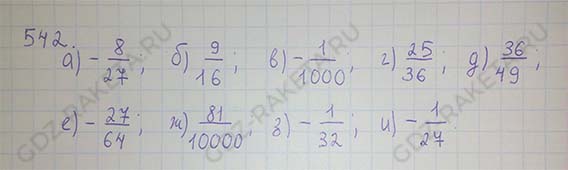 542.
а) - 8/27; б) 9/16; в) - 1/1000; г) 25/36; д) 36/49;
е) - 27/64; ж) 81/10000; з) - 1/32; и) - 1/27.
GDZ-RAKETA.RU
GDZ-RAKETA.RU
GDZ-RAKETA.RU
GDZ-RAKETA.RU